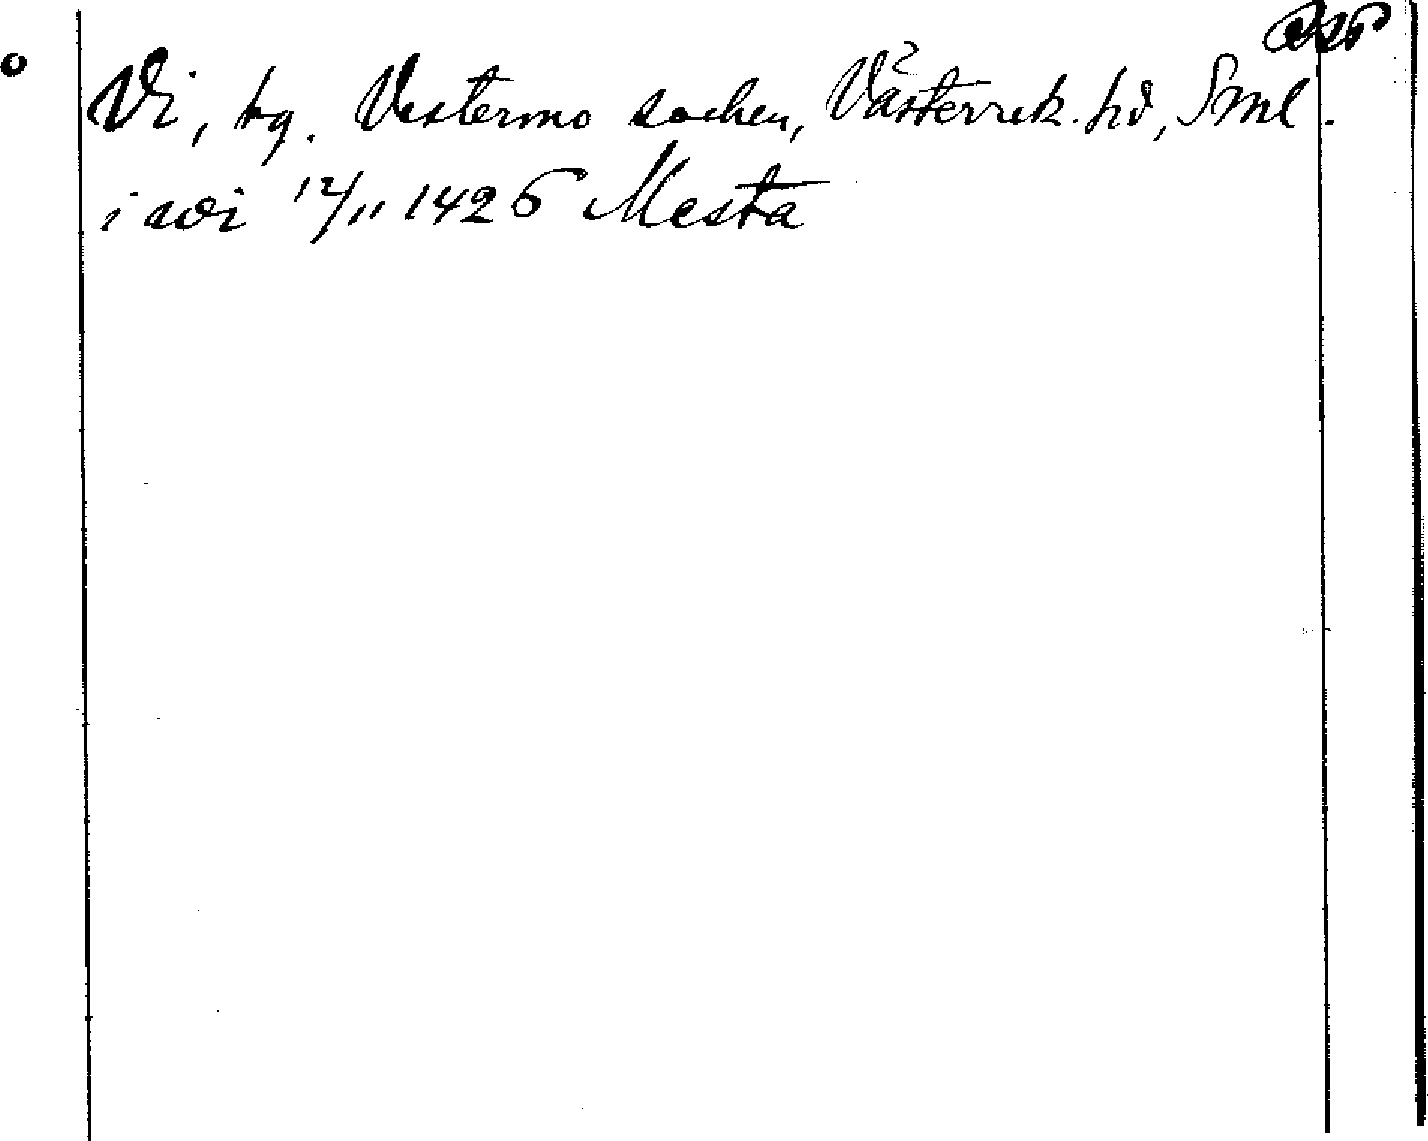 Vi, hg. Vestermo socken, Västerrek. hd, Sml.
i wi 12/11 1425 Mesta